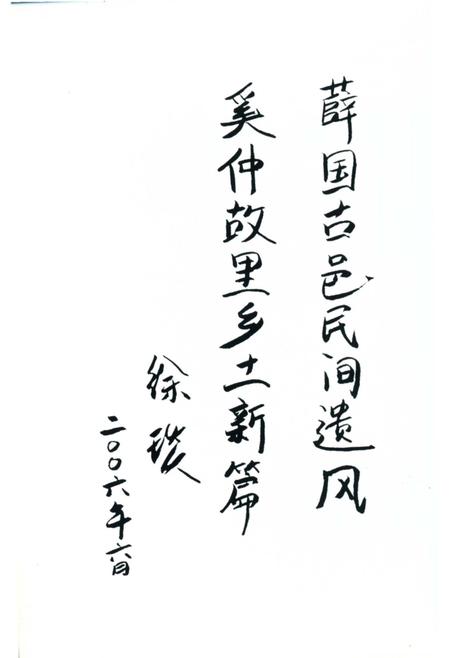 薛国古邑民间遗风
奚仲故里乡土新篇
徐琰
二〇〇六年六月